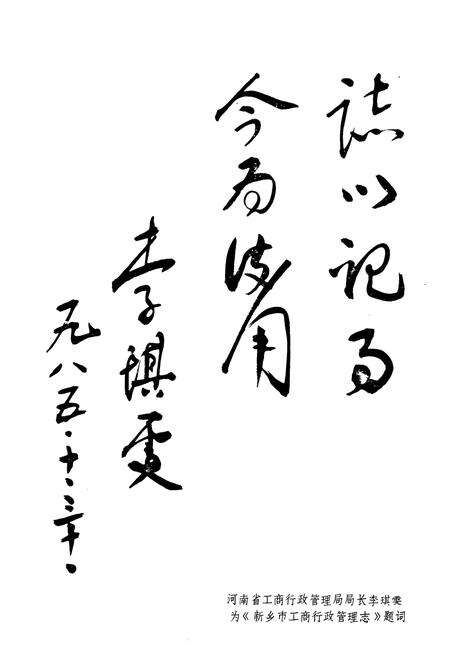 誌以记事
今为後用
李琪雯
一九八五·十·三十·
河南省工商行政管理局局长李琪雯
为《新乡市工商行政管理志》题词